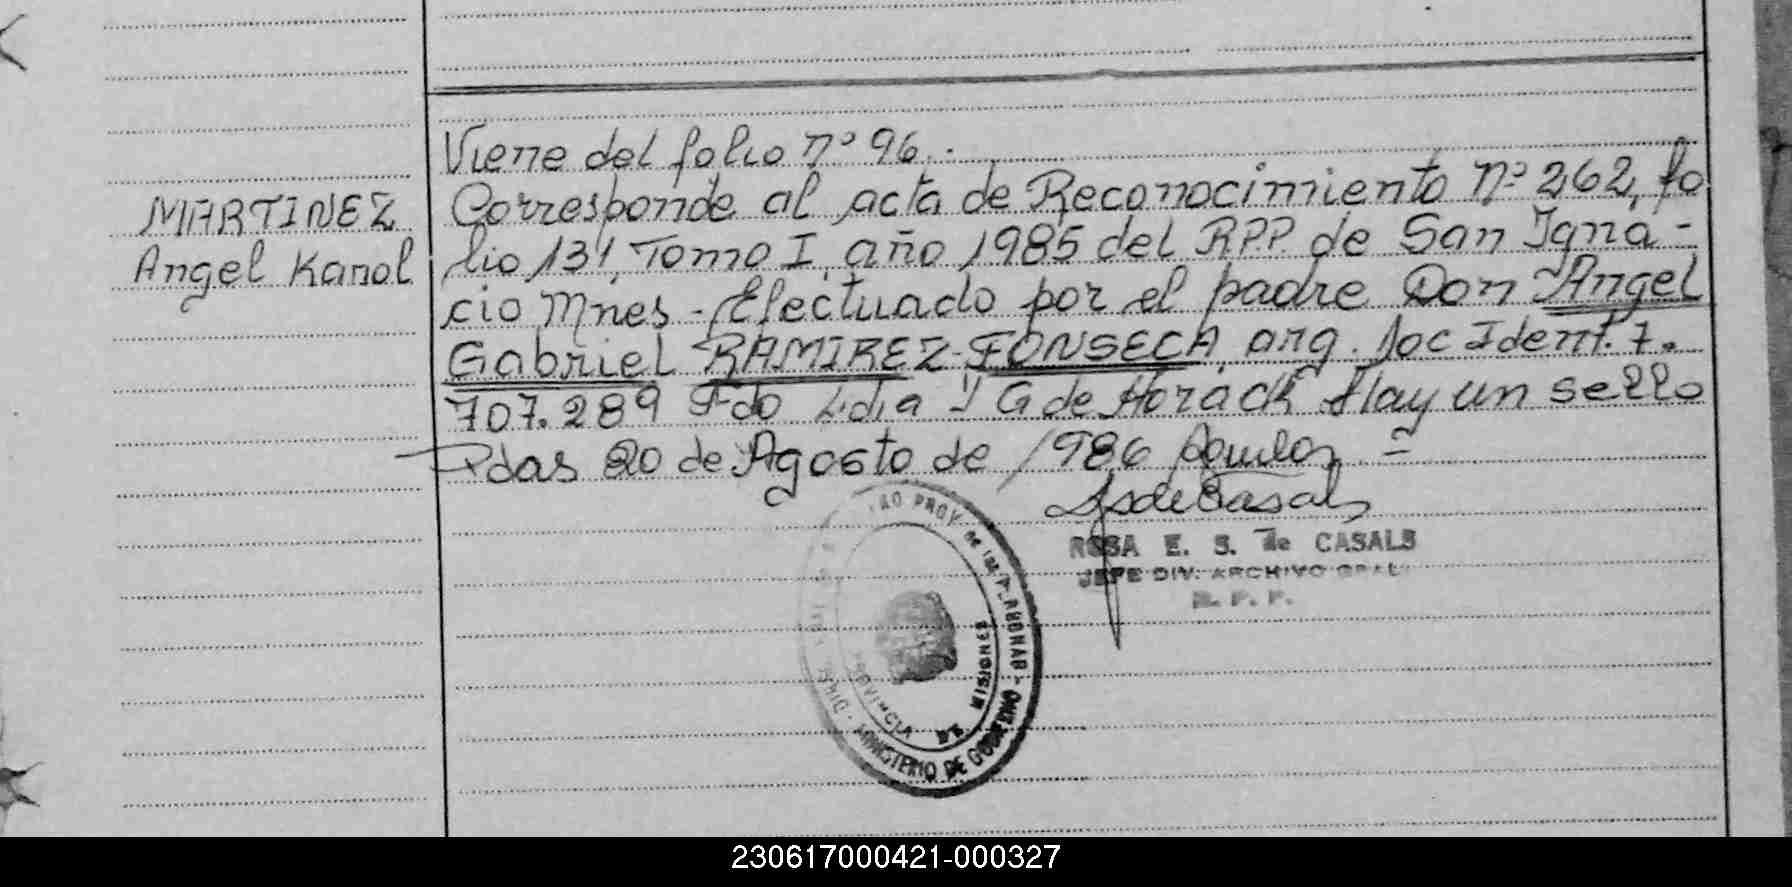 Viene del folio nº 96.
MARTINEZ
Angel Karol
Corresponde al acta de Reconocimiento nº 262, fo
lio 131 Tomo I, año 1985 del RPP de San Igna-
cio Mnes - Efectuado por el padre Don Angel
Gabriel RAMIREZ-FONSECA, arg. Doc Ident. 7.
707.289 Fdo Lidia Y G de Horack Hay un sello
Pdas 20 de Agosto de 1986
ROSA E. S. de CASALS
JEFE DIV. ARCHIVO GRAL.
R. P. P.
MINISTERIO DE GOBIERNO
PROVINCIA DE MISIONES
230617000421-000327